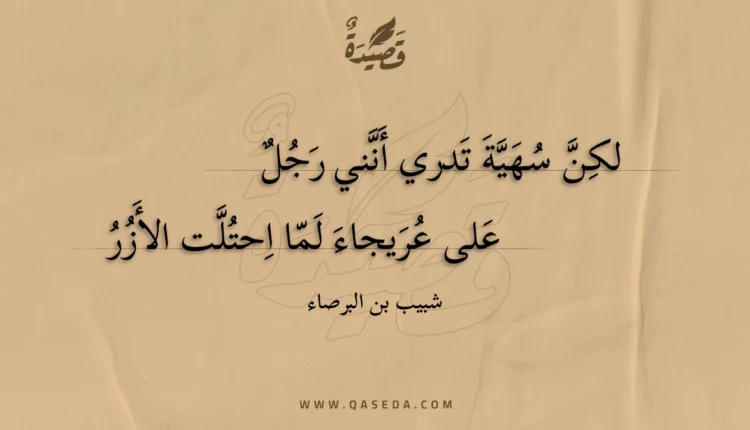 قَصِيْدَةٌ
لكِنَّ سُهَيَّةَ تَدري أَنَّني رَجُلٌ
عَلى عُرَيجاءَ لَمّا اِحتُلَّت الأَزُرُ
شبيب بن البرصاء
WWW.QASEDA.COM